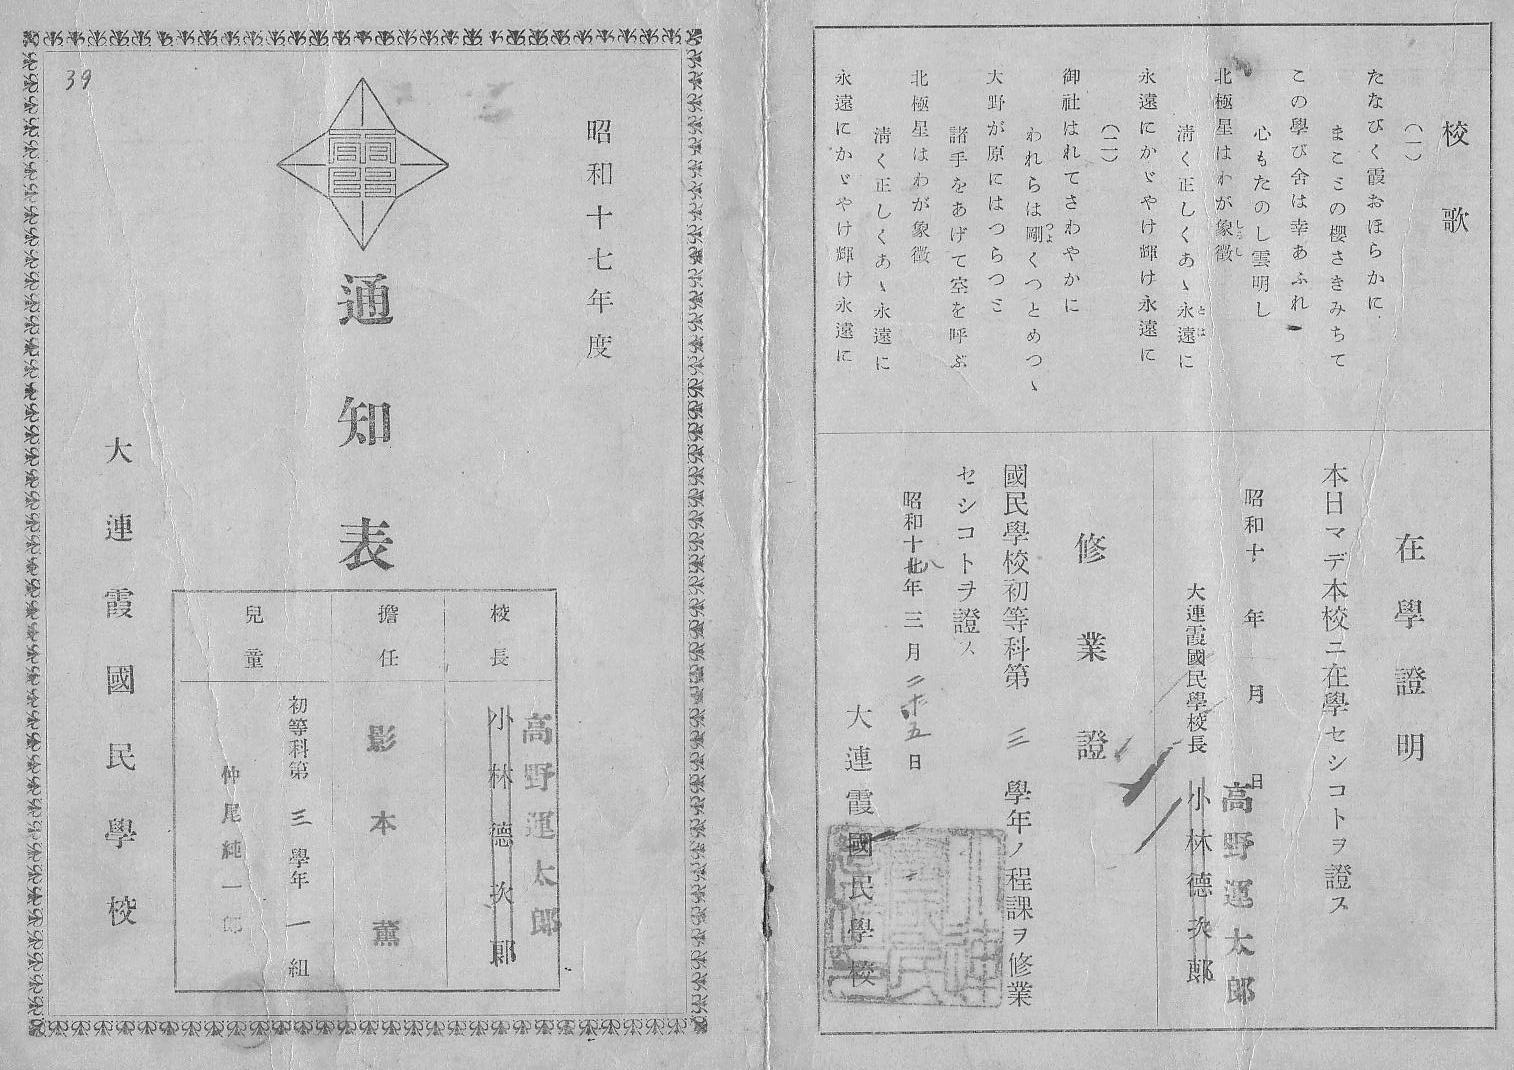 校歌
(一)
たなびく霞おほらかに
まことの櫻さきみちて
この學び舍は幸あふれ
心もたのし雲明し
北極星はわが象徴
しるし
淸く正しくあゝ永遠に
とは
永遠にかゞやけ輝け永遠に
(二)
御社はれてさわやかに
われらは剛くつとめつゝ
つよ
大野が原にはつらつと
諸手をあげて空を呼ぶ
北極星はわが象徴
淸く正しくあゝ永遠に
永遠にかゞやけ輝け永遠に
在學證明
本日マデ本校ニ在學セシコトヲ證ス
昭和十 年 月 日
大連霞國民學校長 小林德次郞
高野運太郎
修業證
國民學校初等科第 三 學年ノ程課ヲ修業
セシコトヲ證ス
昭和十七八年三月二十五日
大連霞國民學校
39
昭和十七年度
通知表
大連霞國民學校
校長
小林德次郞
高野運太郎
擔任
影本薫
兒童
初等科第 三 學年 一 組
仲尾純一郎